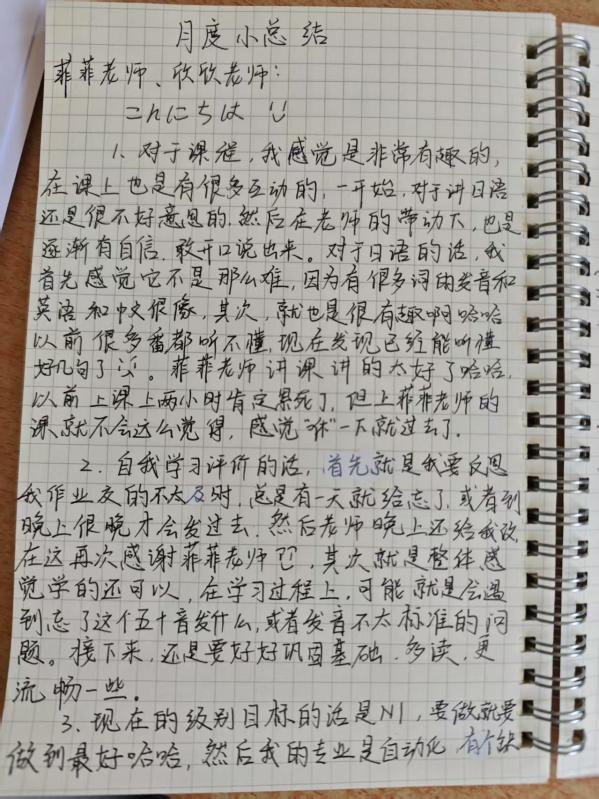 月度小总结
菲菲老师、欣欣老师：
こんにちは
1、对于课程，我感觉是非常有趣的，
在课上也是有很多互动的，一开始，对于讲日语
还是很不好意思的，然后在老师的带动下，也是
逐渐有自信，敢开口说出来。对于日语的话，我
首先感觉它不是那么难，因为有很多词的发音和
英语和中文很像，其次，就也是很有趣啊哈哈
以前很多番都听不懂，现在发现已经能听懂
好几句了。菲菲老师讲课讲的太好了哈哈，
以前上课上两小时肯定累死了，但上菲菲老师的
课就不会这么觉得，感觉“咻”一下就过去了。
2、自我学习评价的话，首先就是我要反思
我作业交的不太及时，总是有一天就给忘了，或者到
晚上很晚才会发过去，然后老师晚上还给我改，
在这再次感谢菲菲老师，其次就是整体感
觉学的还可以，在学习过程上，可能就是会遇
到忘了这个五十音发什么，或者发音不太标准的问
题。接下来，还是要好好巩固基础，多读，更
流畅一些。
3、现在的级别目标的话是N1，要做就要
做到最好哈哈，然后我的专业是自动化，有个缺